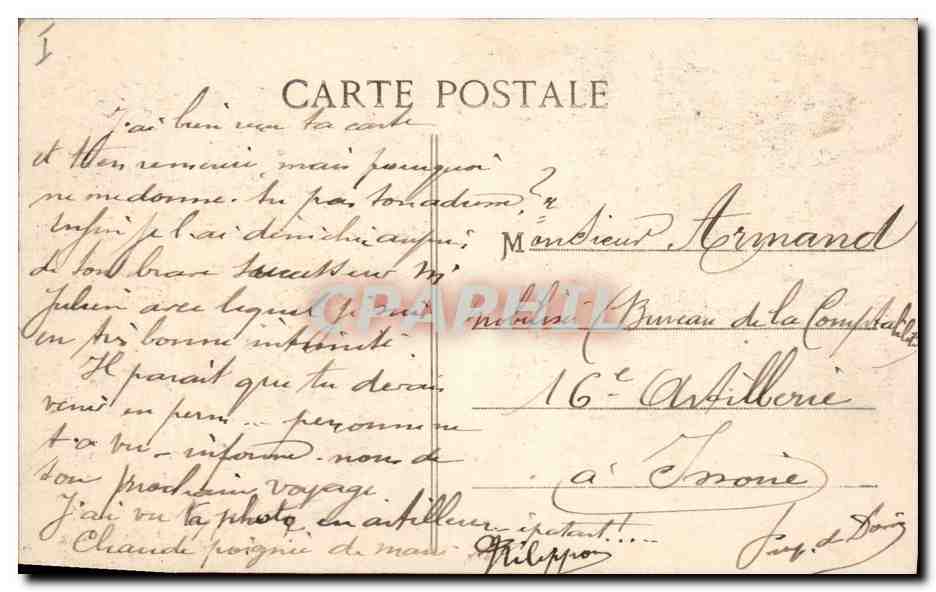 I
CARTE POSTALE
J'ai bien reçu ta carte
et t'en remercie, mais pourquoi
ne me donne-tu pas ton adresse?
Enfin je l'ai déniché auprès
de ton brave successeur Mr
Julien avec lequel je suis
en très bonne intimité
Il parait que tu devais
venir en perm... personne ne
t'a vu - informe-nous de
ton prochain voyage.
J'ai vu ta photo en artilleur - épatant!....
Chaude poignée de main
Philippon
Monsieur Armand
mobilisé Bureau de la Comptabilité
16e Artillerie
à Issoire
Puy-de-Dôme
CPAPHIL